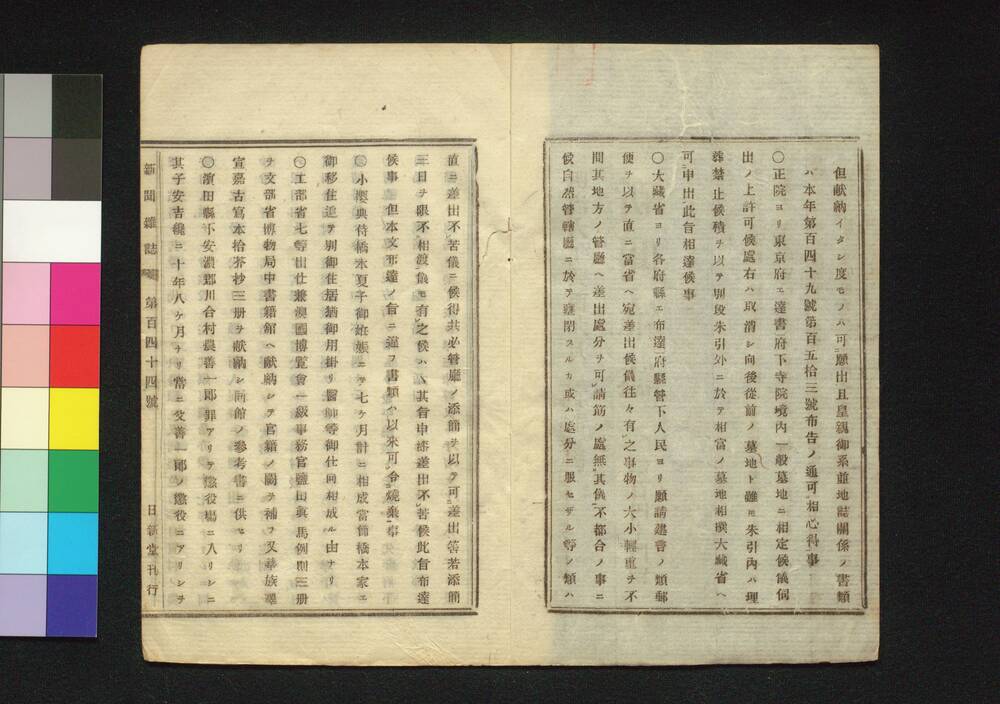 但献納イタシ度モノハ可願出且皇親御系並地誌關係ノ書類
ハ本年第百四十九號第百五拾三號布告ノ通可相心得事
〇正院ヨリ東京府エ達書府下寺院境内一般墓地ニ相定候儀伺
出ノ上許可候處右ハ取消シ向後從前ノ墓地ト雖モ朱引内ハ埋
葬禁止候積ヲ以テ別段朱引外ニ於テ相當ノ墓地相撰大藏省ヘ
可申出此旨相達候事
〇大藏省ヨリ各府縣エ布達府縣管下人民ヨリ願請建書ノ類郵
便ヲ以テ直ニ當省ヘ宛差出候儀往々有之事物ノ大小輕重ヲ不
問其地方ノ管廳ヘ差出處分ヲ可請筋ノ處無其儀不都合ノ事ニ
候自然管轄廳ニ於テ壅閉スルカ或ハ處分ニ服セザル等ノ類ハ
直ニ差出不苦儀ニ候得共必管廳ノ添簡ヲ以テ可差出筈若添簡
三日ヲ限不相渡儀モ有之候ハヽ其旨申添差出不苦候此旨布達
候事 但本文布達ノ旨ニ違フ書類ハ以來可令燒棄事
〇小櫻典侍橋本夏子御妊娠ニテ七ケ月計ニ相成當節橋本家エ
御移住追テ別御住居猶御用掛リ醫師等御仕向相成ル由ナリ
〇工部省七等出仕兼澳國博覽會一級事務官鹽田眞馬例則三册
ヲ文部省博物局中書籍館ヘ献納シテ官籍ノ闕ヲ補フ又華族
宣嘉古寫本拾芥抄三册ヲ献納シ同館ノ參考書ニ供セリ
〇濱田縣下安濃郡川合村農善一郎罪アリテ懲役場ニ入リシニ
其子安吉纔ニ十年八ケ月ナリ常ニ父善一郎ノ懲役ニアリシヲ
新聞雜誌 第百四十四號 日新堂刊行